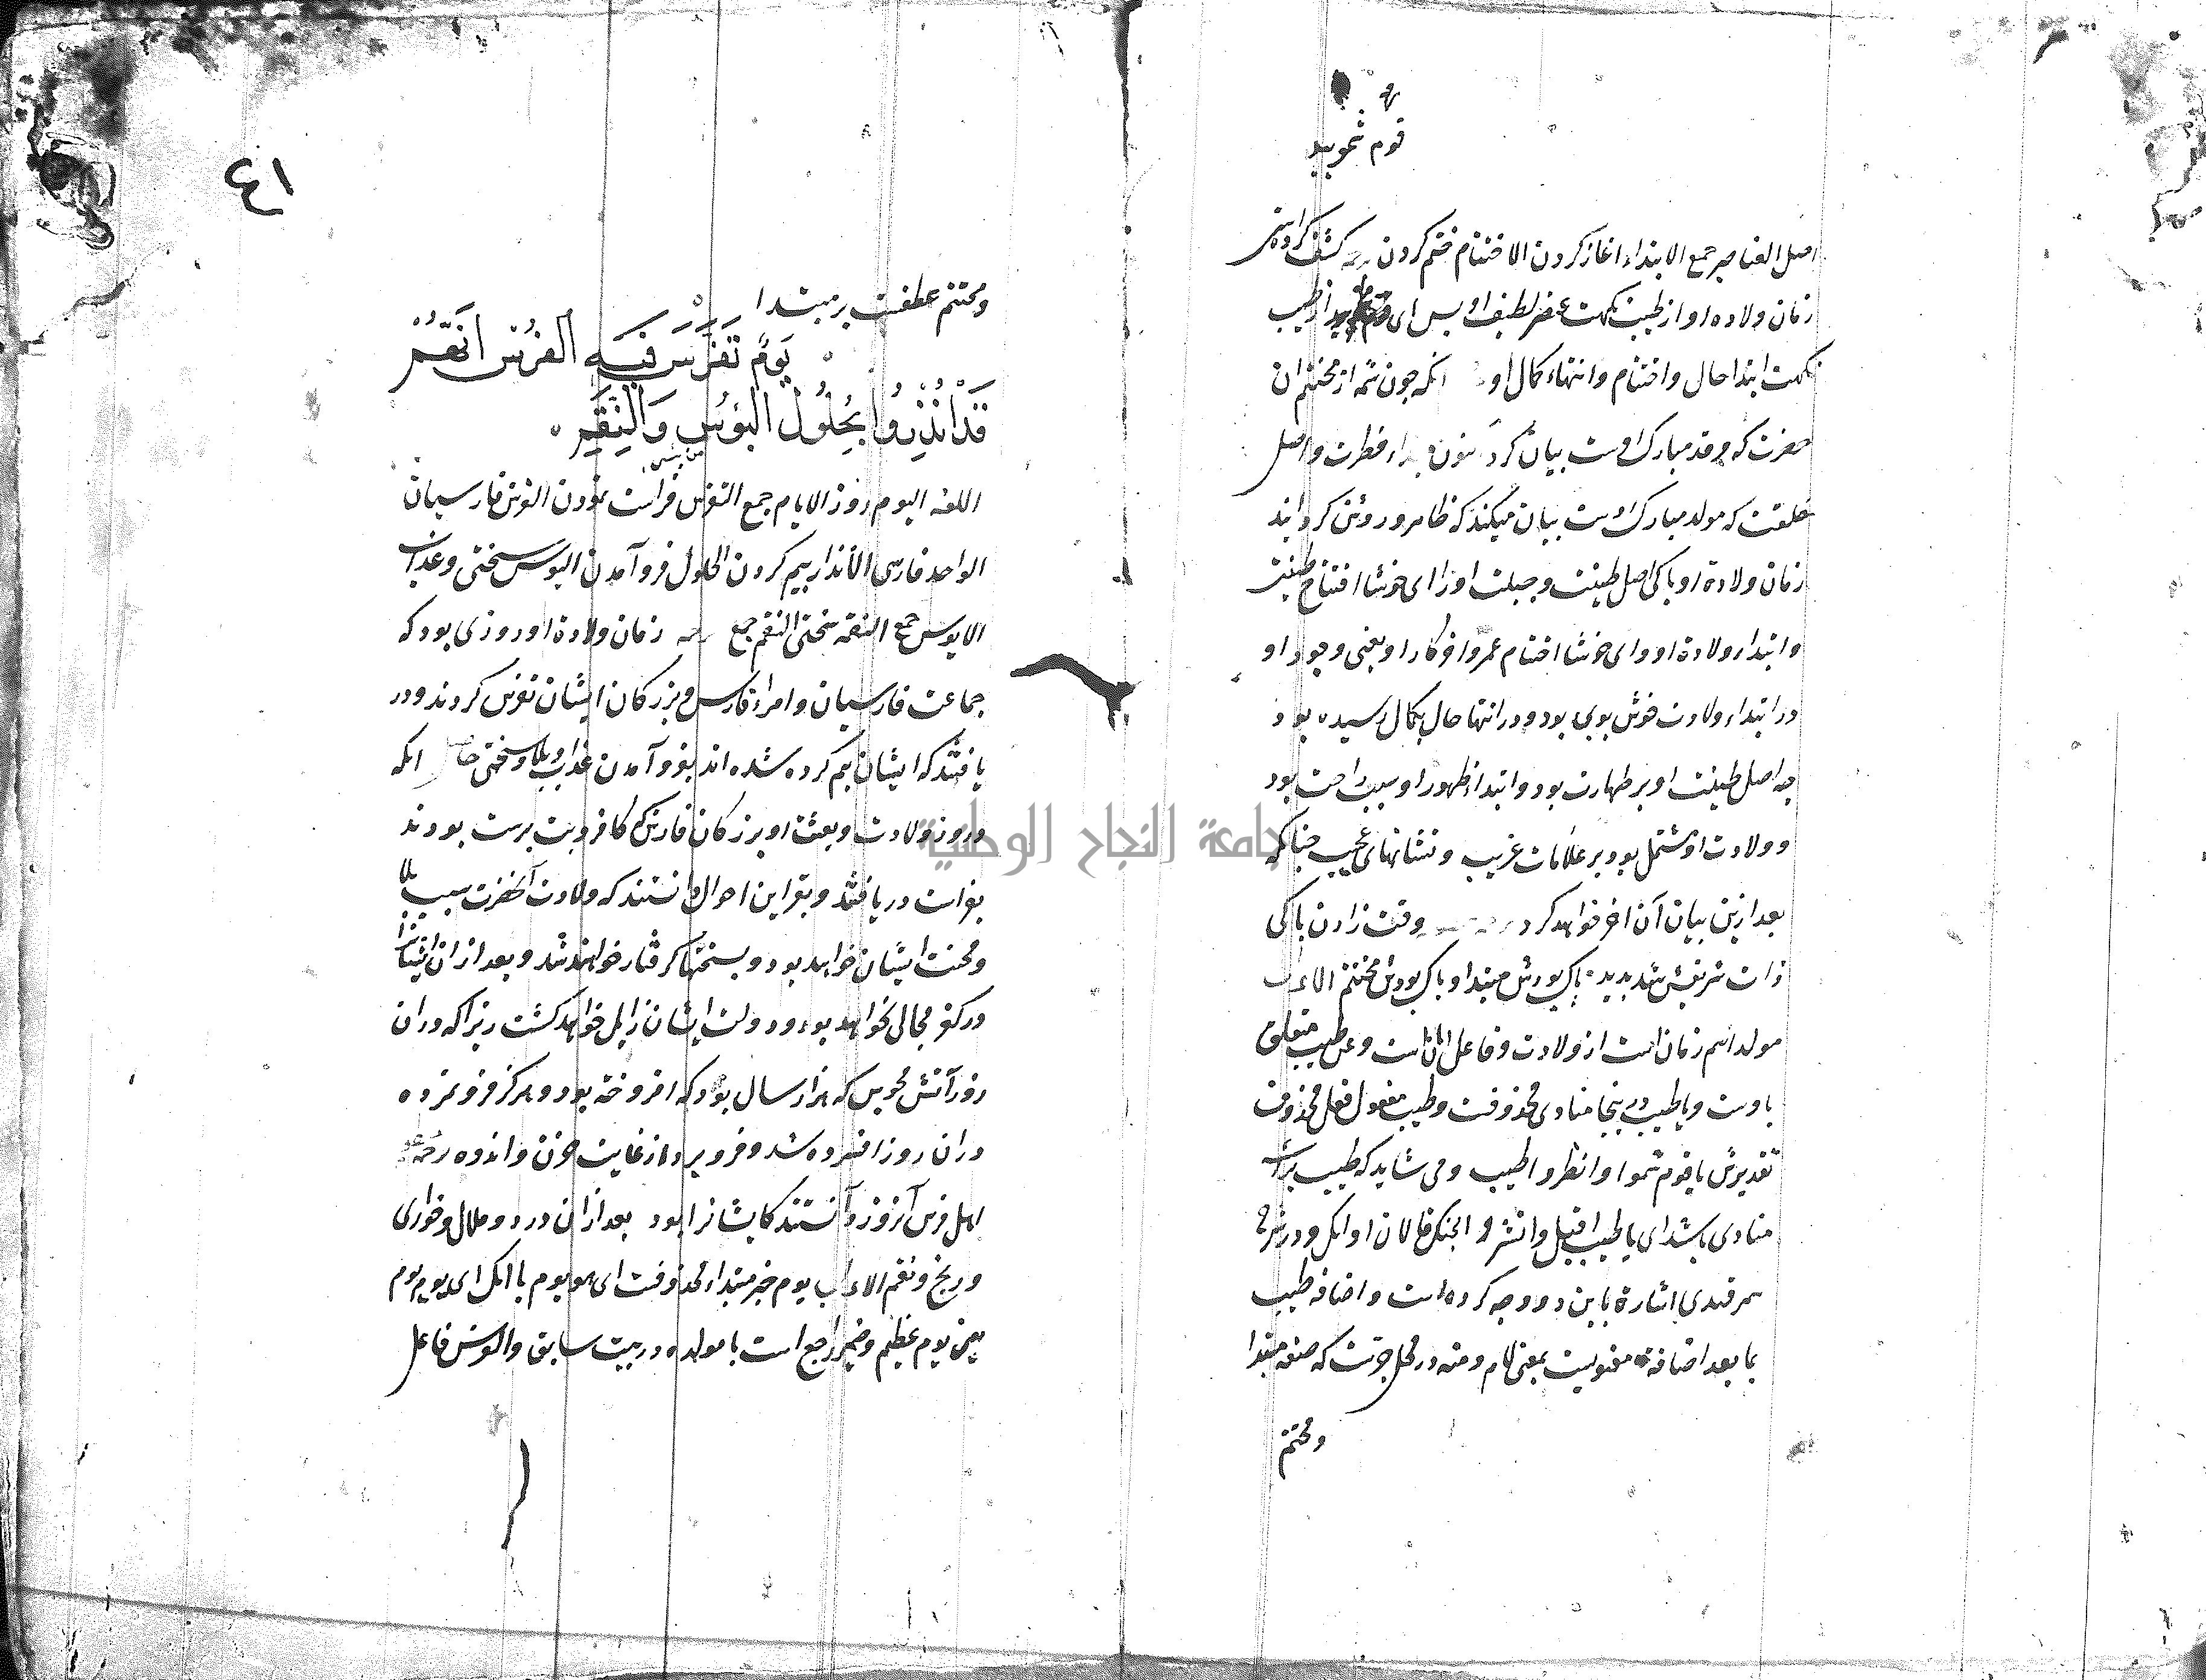 قوم شموبید
اصل العناصر جمع الابتداء اغاز کردن الاختتام ختم کردن کشف کرده است
زمان ولاده او از طیب نکهت عنصر لطیف او پس ای قوم از طیب
نکهت ابتدا حال و اختتام و انتهاء کمال او انکه چون شمه از مختتم ان
حضرت که مرقد مبارک اوست بیان کرد فطرت و اصل
خلقت که مولد مبارک اوست بیان میکند که ظاهر و روشن کردانید
زمان ولادة او پاکی اصل طینت و جبلت او را ای خوشا افتتاح طینت
و ابتداء ولادة او و ای خوشا اختتام عمر و او یعنی وجود او
در ابتداء ولادت خوش بوی بود و در انتها حال بکمال رسیده بود
چه اصل طینت او بر طهارت بود و ابتداء ظهور او سبب راحت بود
و ولادت او مشتمل بود بر علامات غریب و نشانهای عجیب چنانکه
بعد ازین بیان آن اخر خواهد کرد وقت زادن پاکی
ذات شریفش شد پدید پاک بودش مبتدا و پاک بودش مختتم الاعراب
مولد اسم زمان است از ولادت و فاعل ابان است و عن طیب متعلق
باوست و یا طیب درینجا منادی محذوفت و طیب مفعول فعل محذوف
تقدیرش یا قوم شموا و انظروا طیب و می شاید که طیب برای
منادی باشد ای یا طیب اقبل و انتشر و در شرح
سمرقندی اشارة باین دو وجه کرده است و اضافه طیب
بما بعد اضافة معنویست بمعنی لام و منه در محل جرست که صفه مبتدا
و مختتم
٤١
و مختتم عطفست بر مبتدا
یَوْمٌ تَفَرَّسَ فِیهِ الْفُرْسُ اَنَّهُمْ
قَدْ اُنْذِرُوا بِحُلُولِ الْبُؤْسِ وَالنِّقَمِ
اللغه الیوم روز الایام جمع التفرس فراست نمودن الفرس فارسیان
الواحد فارسی الانذار بیم کردن الحلول فرو آمدن البوس سختی و عذاب
الابوس جمع النقمه سختی النقم جمع زمان ولادة او روزی بود که
جماعت فارسیان و امراء فارس و بزرکان ایشان تفرس کردند و در
یافتند که ایشان بیم کرده شده اند بفرو آمدن عذاب و بلا و سختی حاصل انکه
در روز ولادت و بعثت او بزرکان فارس که کافر و بت پرست بودند
بفراست در یافتند و بقراین احوال دانستند که ولادت آنحضرت سبب بلا
و محنت ایشان خواهد بود و بسختیها کرفتار خواهند شد و بعد از ان ایشانرا
در کفر مجالی نخواهد بود و دولت ایشان زایل خواهد کشت زیرا که در ان
روز آتش مجوس که هزار سال بود که افروخته بود و هرکز فرو نمرده
در ان روز افسرده شد و فرو مرد از غایت حزن و اندوه
اهل فرس آنروز دانستند کایشانرا بود بعد از ان درد و ملال و خواری
و رنج و نقم الاعراب یوم خبر مبتداء محذوفست ای هو یوم یا انکه ای یوم یوم
یعنی یوم عظیم و ضمیر راجع است با مولده در بیت سابق و الفرس فاعل
جامعة النجاح الوطنية